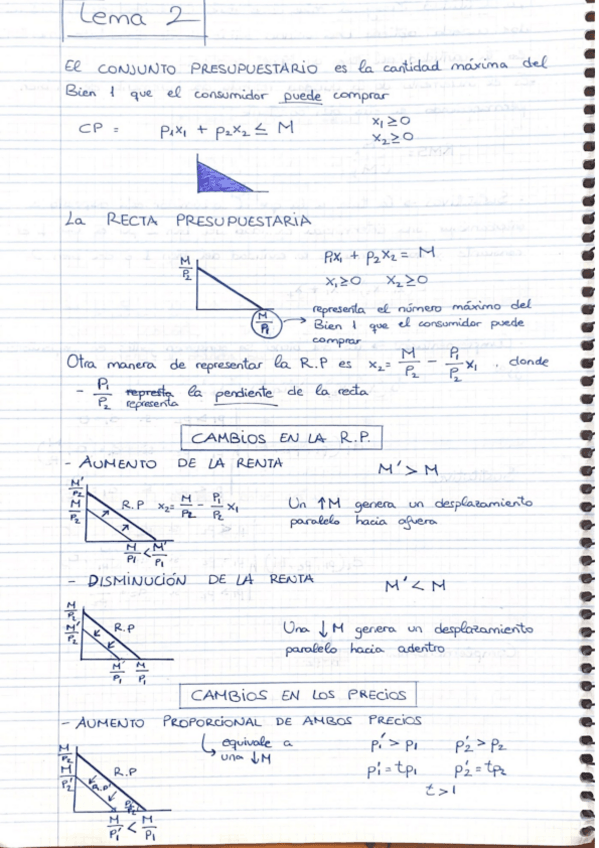 Tema 2
El CONJUNTO PRESUPUESTARIO es la cantidad máxima del
Bien 1 que el consumidor puede comprar
CP = p₁x₁ + p₂x₂ ≤ M x₁ ≥ 0
x₂ ≥ 0
La RECTA PRESUPUESTARIA
M/P₂ p₁x₁ + p₂x₂ = M
x₁ ≥ 0 x₂ ≥ 0
M/P₁ → representa el número máximo del
Bien 1 que el consumidor puede
comprar
Otra manera de representar la R.P es x₂ = M/P₂ - P₁/P₂ x₁ , donde
- P₁/P₂ represta la pendiente de la recta
representa
CAMBIOS EN LA R.P.
- AUMENTO DE LA RENTA M' > M
M'/P₂
M/P₂ R.P x₂ = M/P₂ - P₁/P₂ x₁ Un ↑M genera un desplazamiento
paralelo hacia afuera
M/P₁ < M'/P₁
- DISMINUCIÓN DE LA RENTA M' < M
M/P₂
M'/P₂ R.P Una ↓M genera un desplazamiento
paralelo hacia adentro
M'/P₁ M/P₁
CAMBIOS EN LOS PRECIOS
- AUMENTO PROPORCIONAL DE AMBOS PRECIOS
↳ equivale a p₁' > p₁ p₂' > p₂
una ↓M
M/P₂ R.P p₁' = tp₁ p₂' = tp₂
M/P₂' R.P' t > 1
M/P₁' < M/P₁